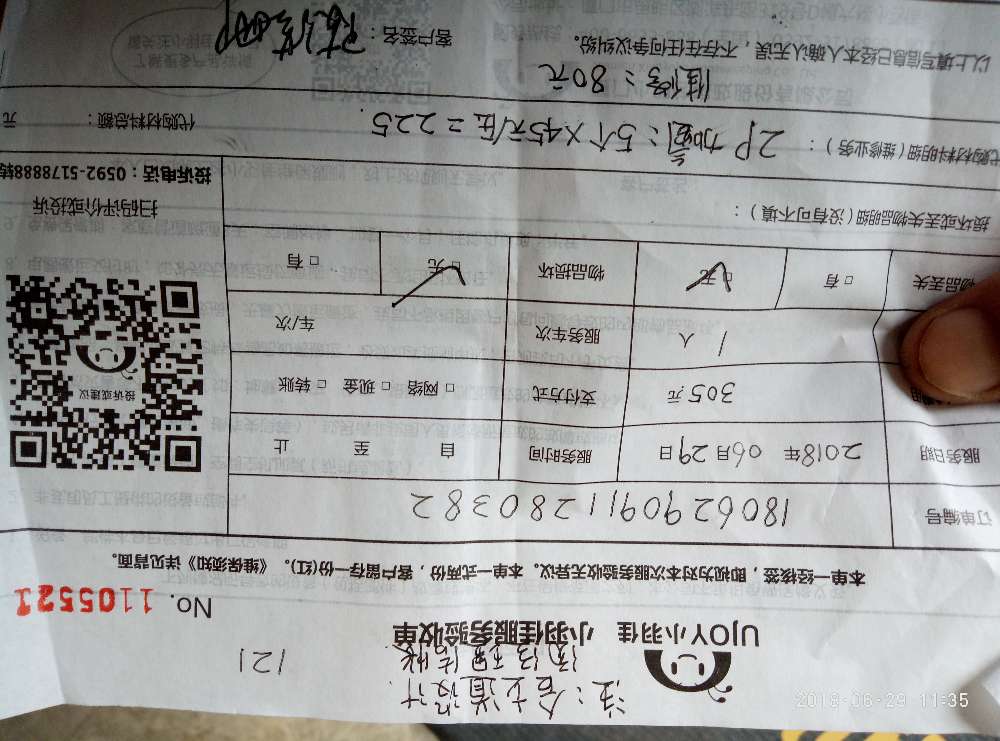 121
UJOY小羽佳 小羽佳服务验收单
No. 1105521
本单一经接签，即视为对本次服务验收无异议。本单一式两份，客户留存一份(红)。《维保须知》详见背面。
订单编号 1806290911280382
服务日期 2018年 06月29日 服务时间 自 至 止
305元 支付方式 □网络 □现金 □转账
1人 服务车次 车/次
物品丢失 □有 □无 物品损坏 □无 □有
投诉或建议
扫码评价或投诉
投诉电话：0592-5178888转
损坏或丢失物品明细（没有可不填）：
代购材料明细（维修业务）： 2P加氟：5个×45元/伍=225. 代购材料总额： 元
维修：80元
以上填写信息已经本人确认无误，不存在任何争议纠纷。 客户签名：
2018-06-29 11:35